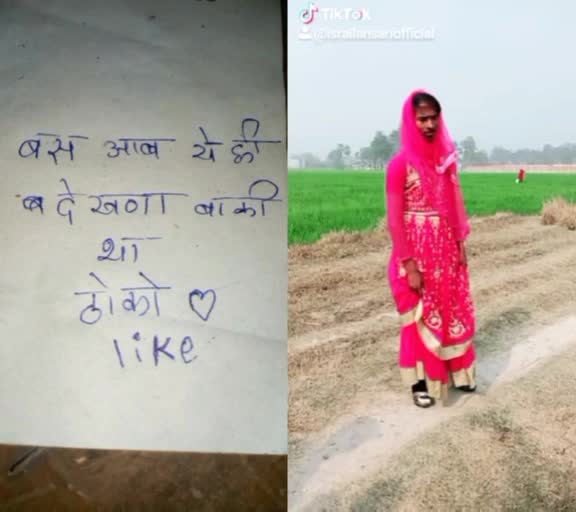 बस आब ये ही
ब देखणा बाकी
था
ठोको ♡
like
TikTok
@israilansariofficial